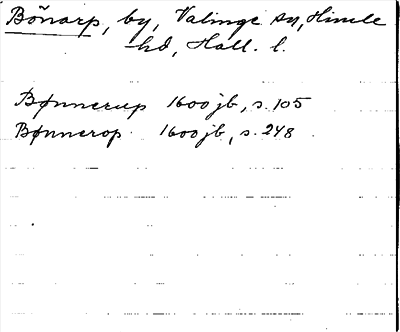 Bönarp, by, Valinge sn, Himle
hd, Hall. l.
Bønnerup 1600 jb, s. 105
Bønnerop 1600 jb, s. 248